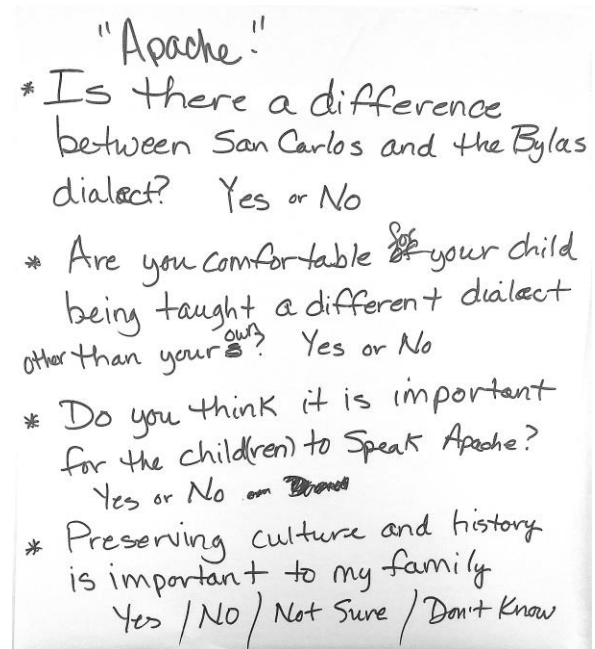 "Apache"
* Is there a difference
between San Carlos and the Bylas
dialect? Yes or No
* Are you comfortable for your child
being taught a different dialect
other than your own? Yes or No
* Do you think it is important
for the child(ren) to Speak Apache?
Yes or No
* Preserving culture and history
is important to my family
Yes / No / Not Sure / Don't Know